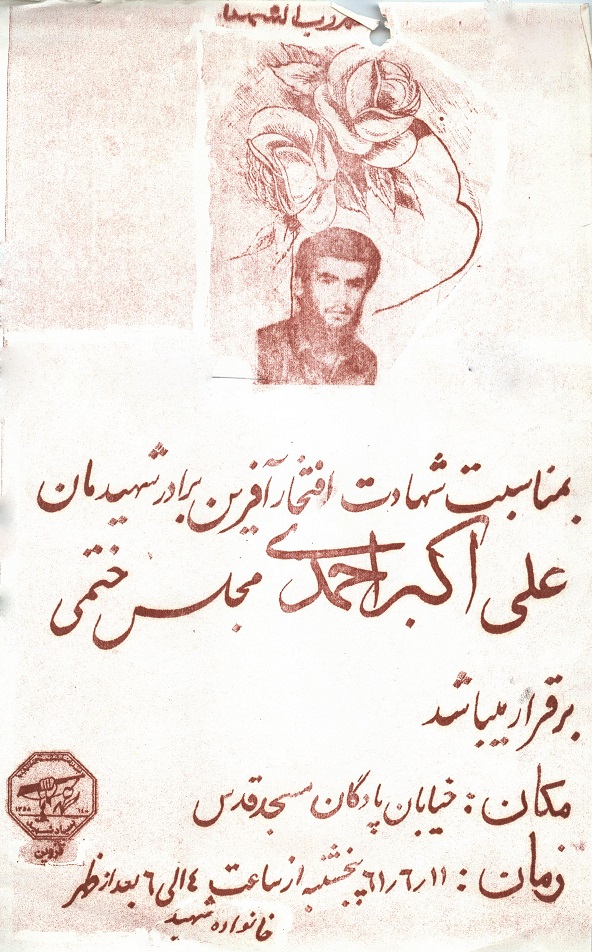 رب الشهدا
بمناسبت شهادت افتخارآفرین برادر شهیدمان
علی اکبر احمدی مجلس ختمی
برقرار میباشد
مکان : خیابان پادگان مسجد قدس
زمان : ۶۱٫۶٫۱۱ پنجشنبه از ساعت ۴ الی ۶ بعد از ظهر
خانواده شهید
۱۳۵۸
قزوین